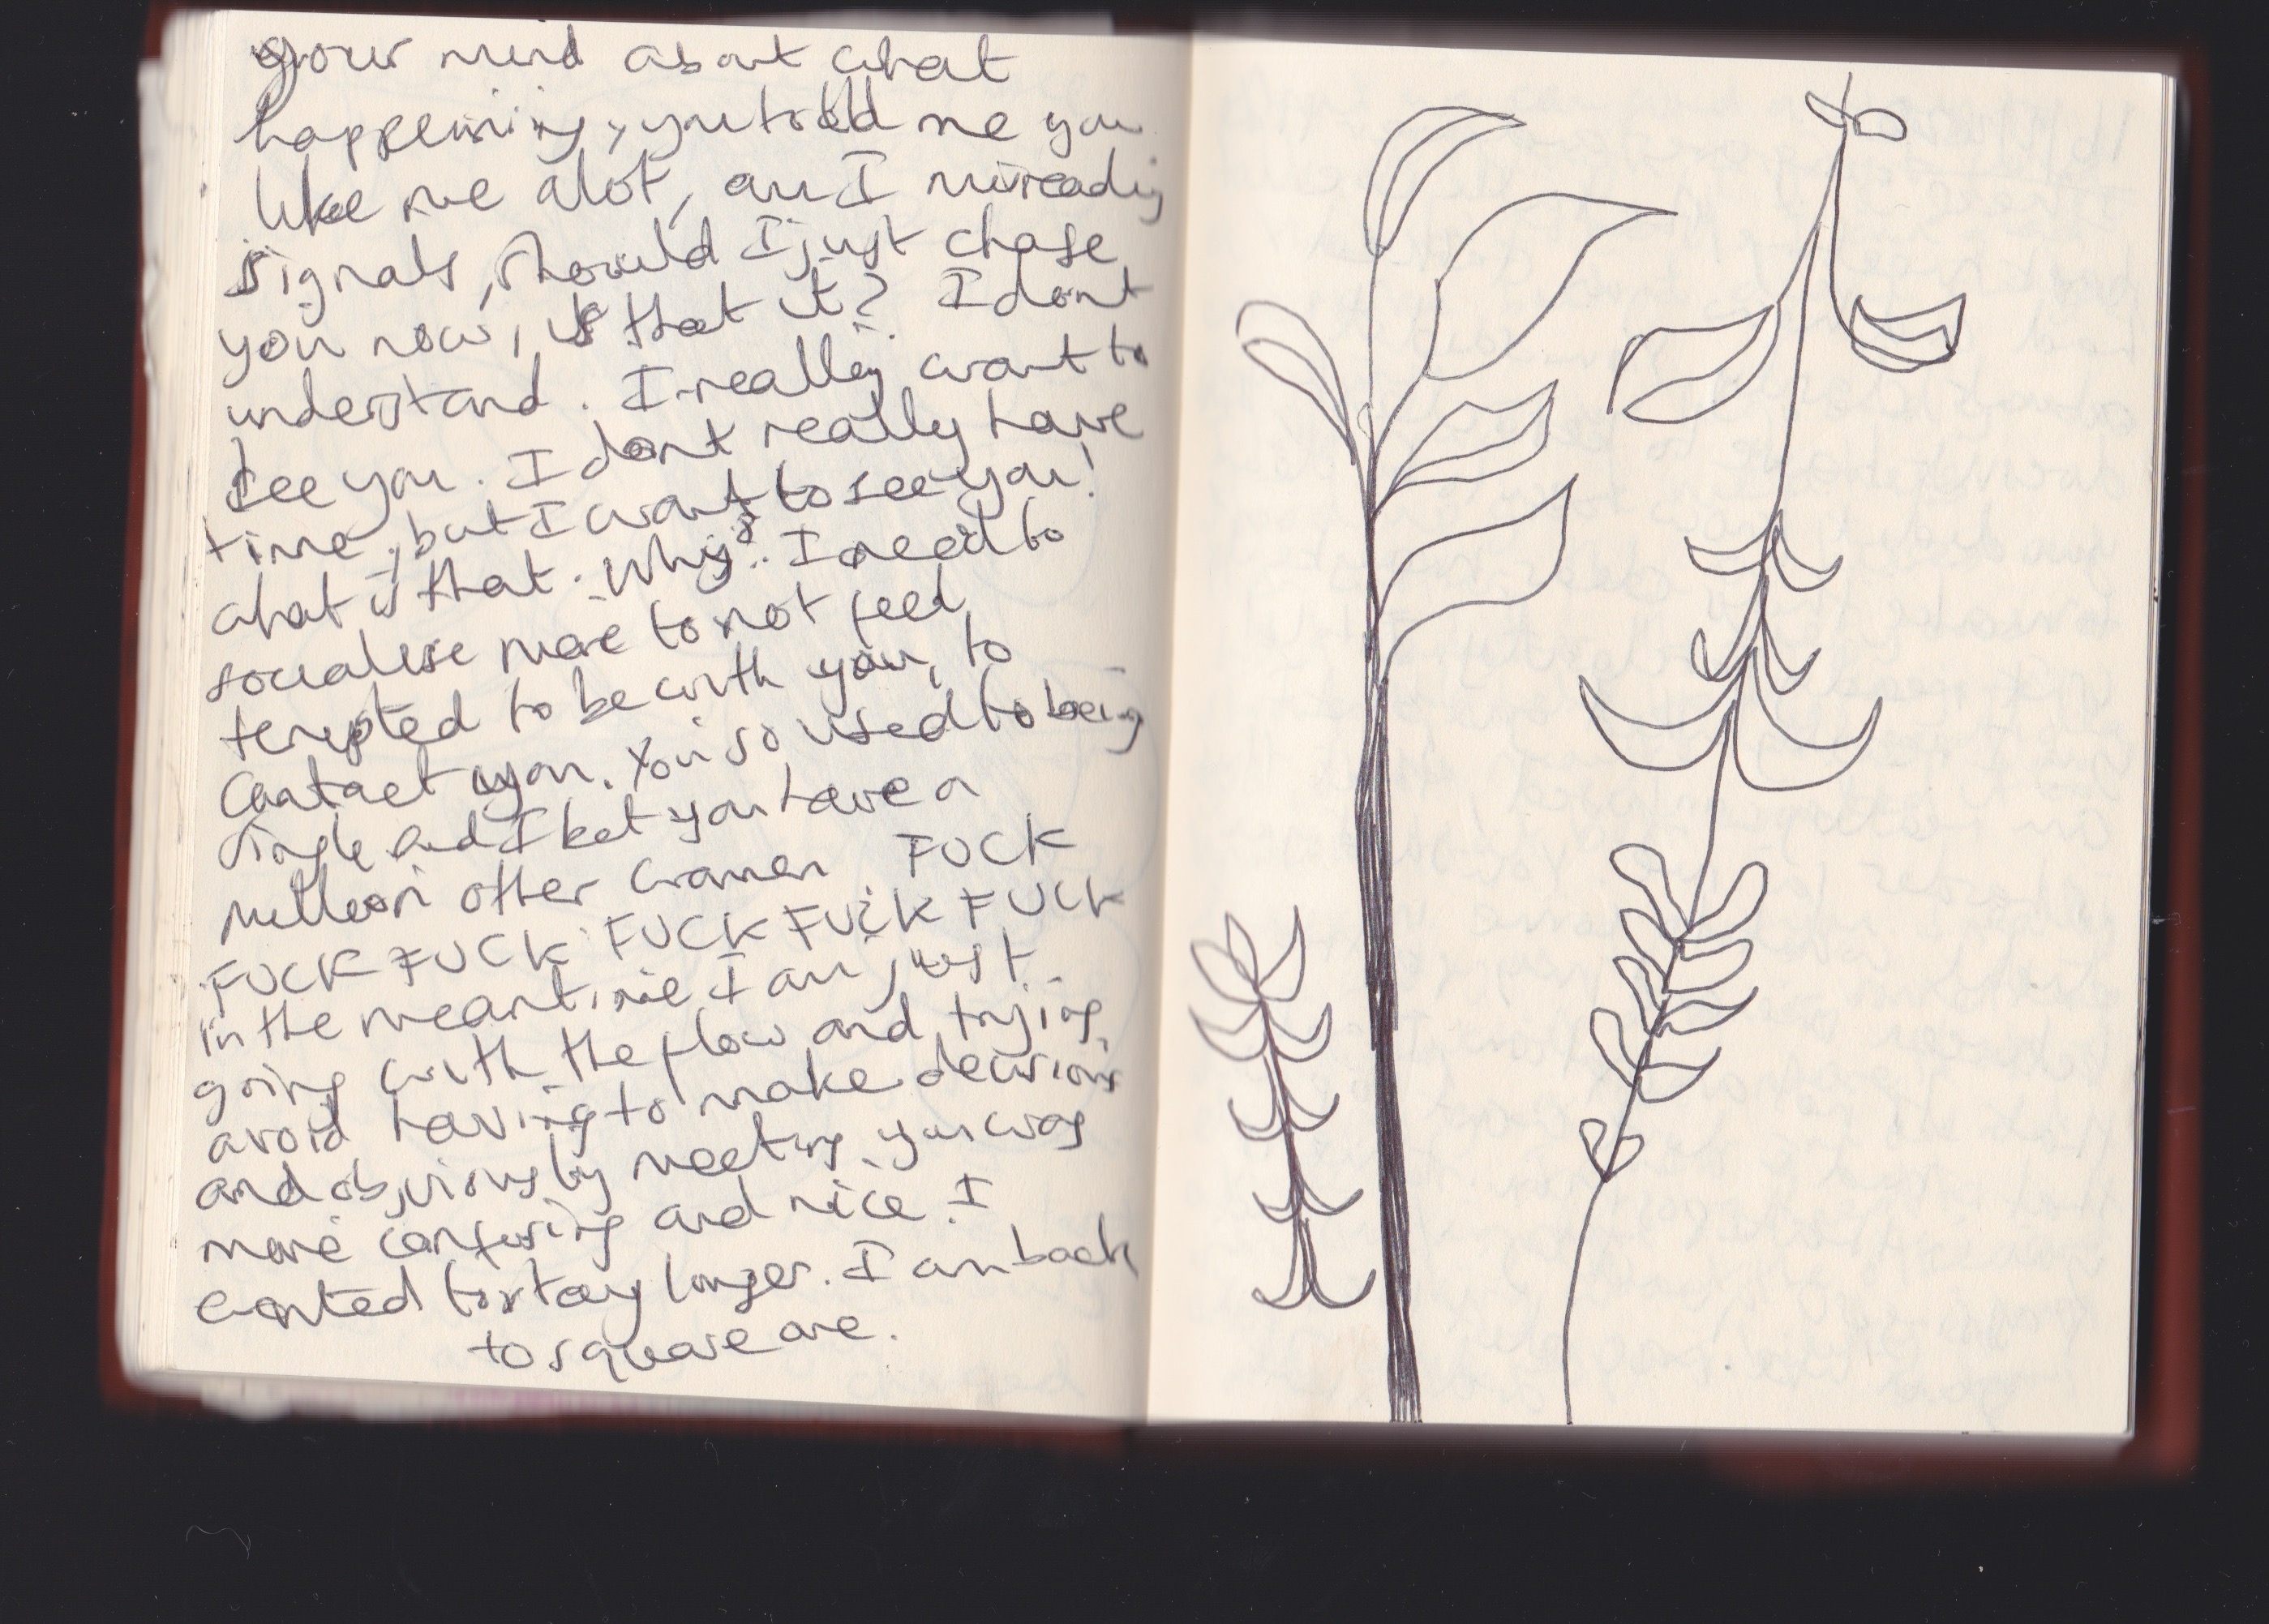 your mind about what
happening, you told me you
like me alot, am I misreading
signals, should I just chase
you now, is that it? I dont
understand. I really want to
see you. I dont really have
time, but I want to see you!
what is that. Why? I need to
socialise more to not feel
tempted to be with you, to
contact you. You so used to being
single and I bet you have a
million other women FUCK
FUCK FUCK FUCK FUCK FUCK
in the meantime I am just
going with the flow and trying
avoid having to make decisions
and obviously meeting you was
more confusing and nice. I
wanted to stay longer. I am back
to square one.